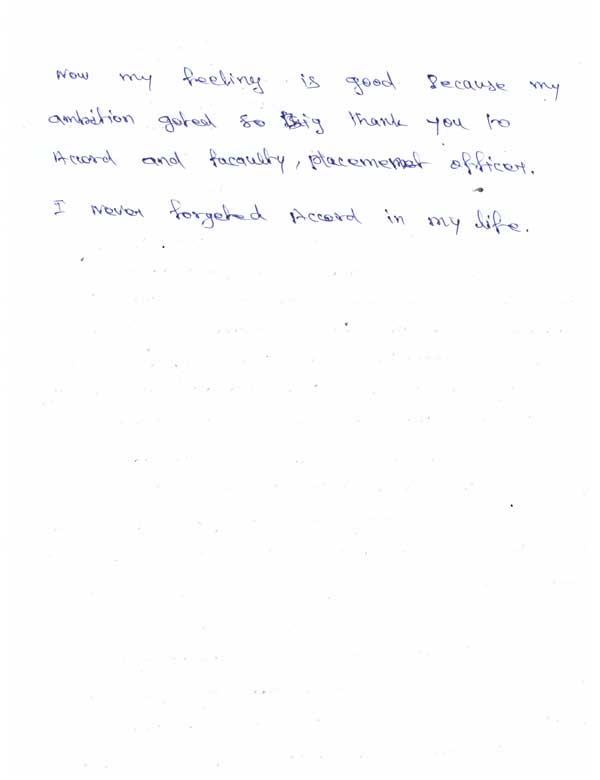 Now my feeling is good Because my
ambition goted so Big thank you to
Accord and facaulty, placement officer.
I never forgeted Accord in my life.